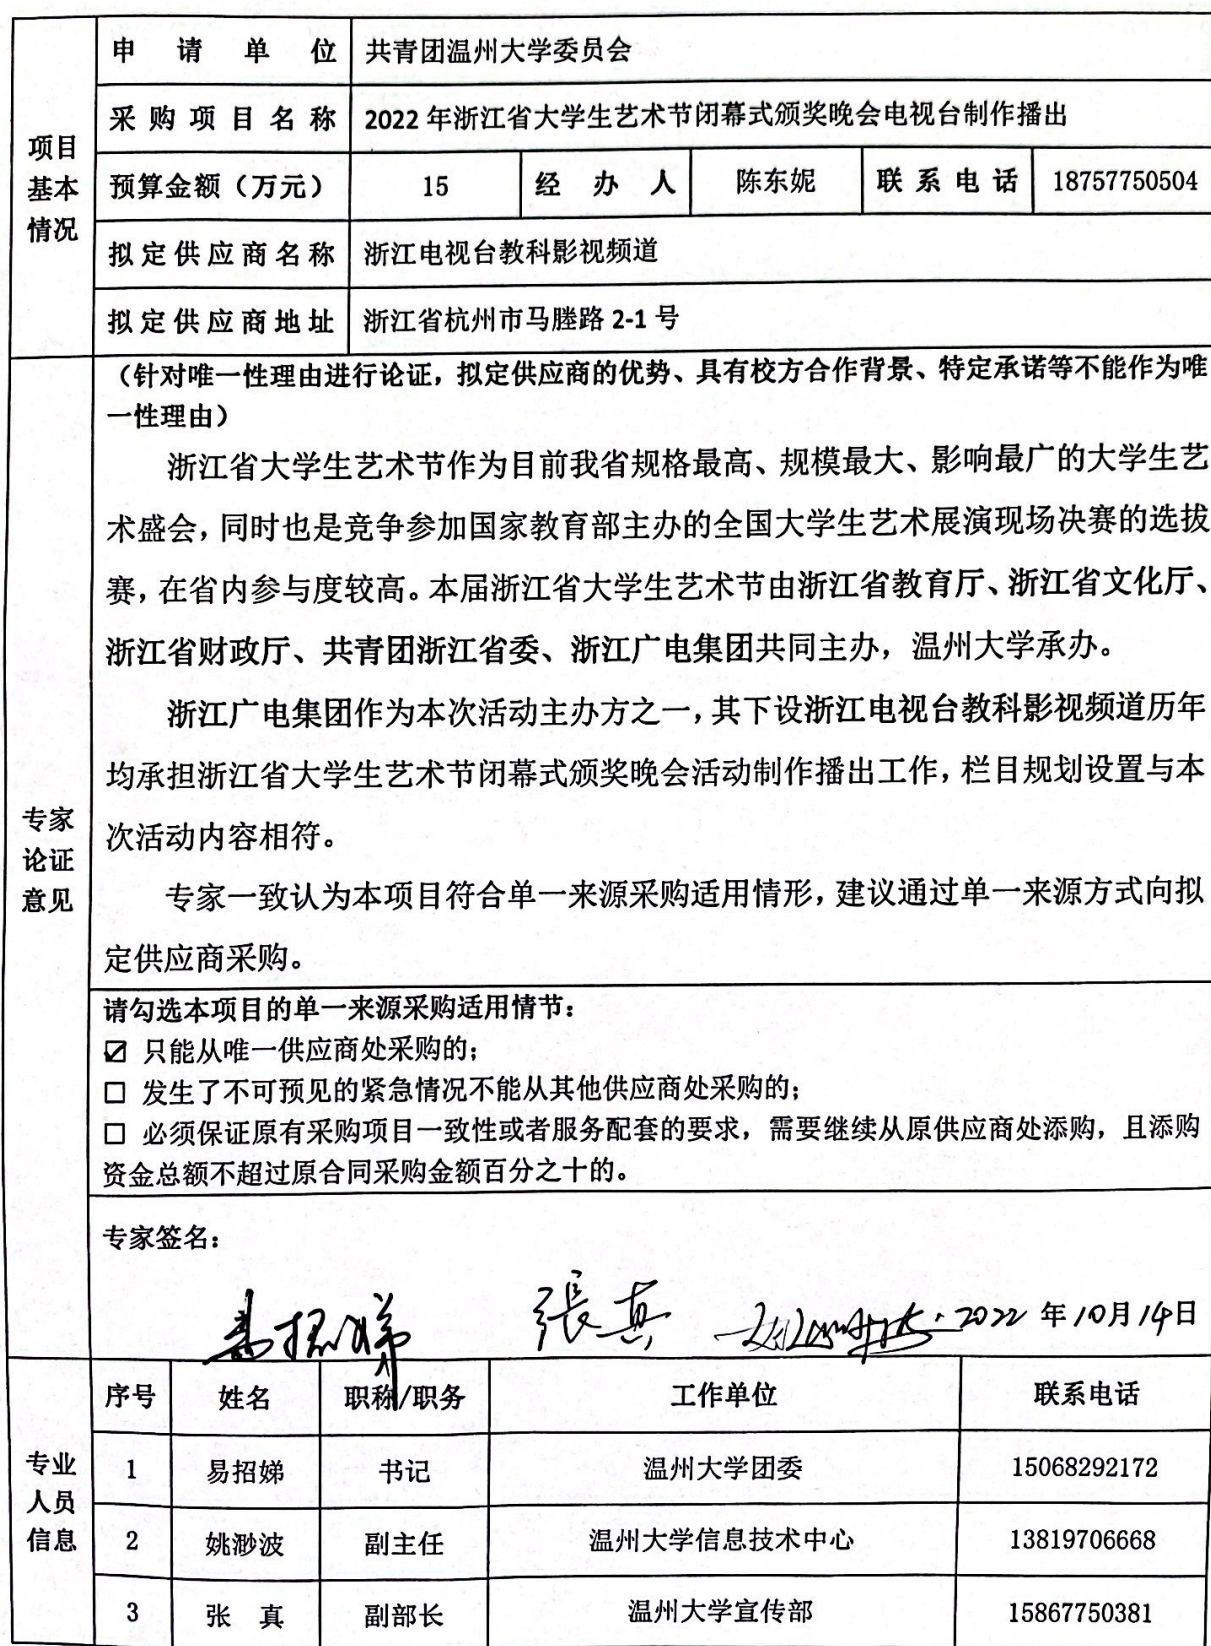 申请单位 共青团温州大学委员会
采购项目名称 2022年浙江省大学生艺术节闭幕式颁奖晚会电视台制作播出
项目基本情况
预算金额（万元） 15 经办人 陈东妮 联系电话 18757750504
拟定供应商名称 浙江电视台教科影视频道
拟定供应商地址 浙江省杭州市马塍路2-1号
（针对唯一性理由进行论证，拟定供应商的优势、具有校方合作背景、特定承诺等不能作为唯
一性理由）
浙江省大学生艺术节作为目前我省规格最高、规模最大、影响最广的大学生艺
术盛会，同时也是竞争参加国家教育部主办的全国大学生艺术展演现场决赛的选拔
赛，在省内参与度较高。本届浙江省大学生艺术节由浙江省教育厅、浙江省文化厅、
浙江省财政厅、共青团浙江省委、浙江广电集团共同主办，温州大学承办。
浙江广电集团作为本次活动主办方之一，其下设浙江电视台教科影视频道历年
均承担浙江省大学生艺术节闭幕式颁奖晚会活动制作播出工作，栏目规划设置与本
次活动内容相符。
专家论证意见
专家一致认为本项目符合单一来源采购适用情形，建议通过单一来源方式向拟
定供应商采购。
请勾选本项目的单一来源采购适用情节：
☑ 只能从唯一供应商处采购的；
□ 发生了不可预见的紧急情况不能从其他供应商处采购的；
□ 必须保证原有采购项目一致性或者服务配套的要求，需要继续从原供应商处添购，且添购
资金总额不超过原合同采购金额百分之十的。
专家签名：
易招娣 張真 2022年10月14日
序号 姓名 职称/职务 工作单位 联系电话
专业人员信息
1 易招娣 书记 温州大学团委 15068292172
2 姚渺波 副主任 温州大学信息技术中心 13819706668
3 张真 副部长 温州大学宣传部 15867750381